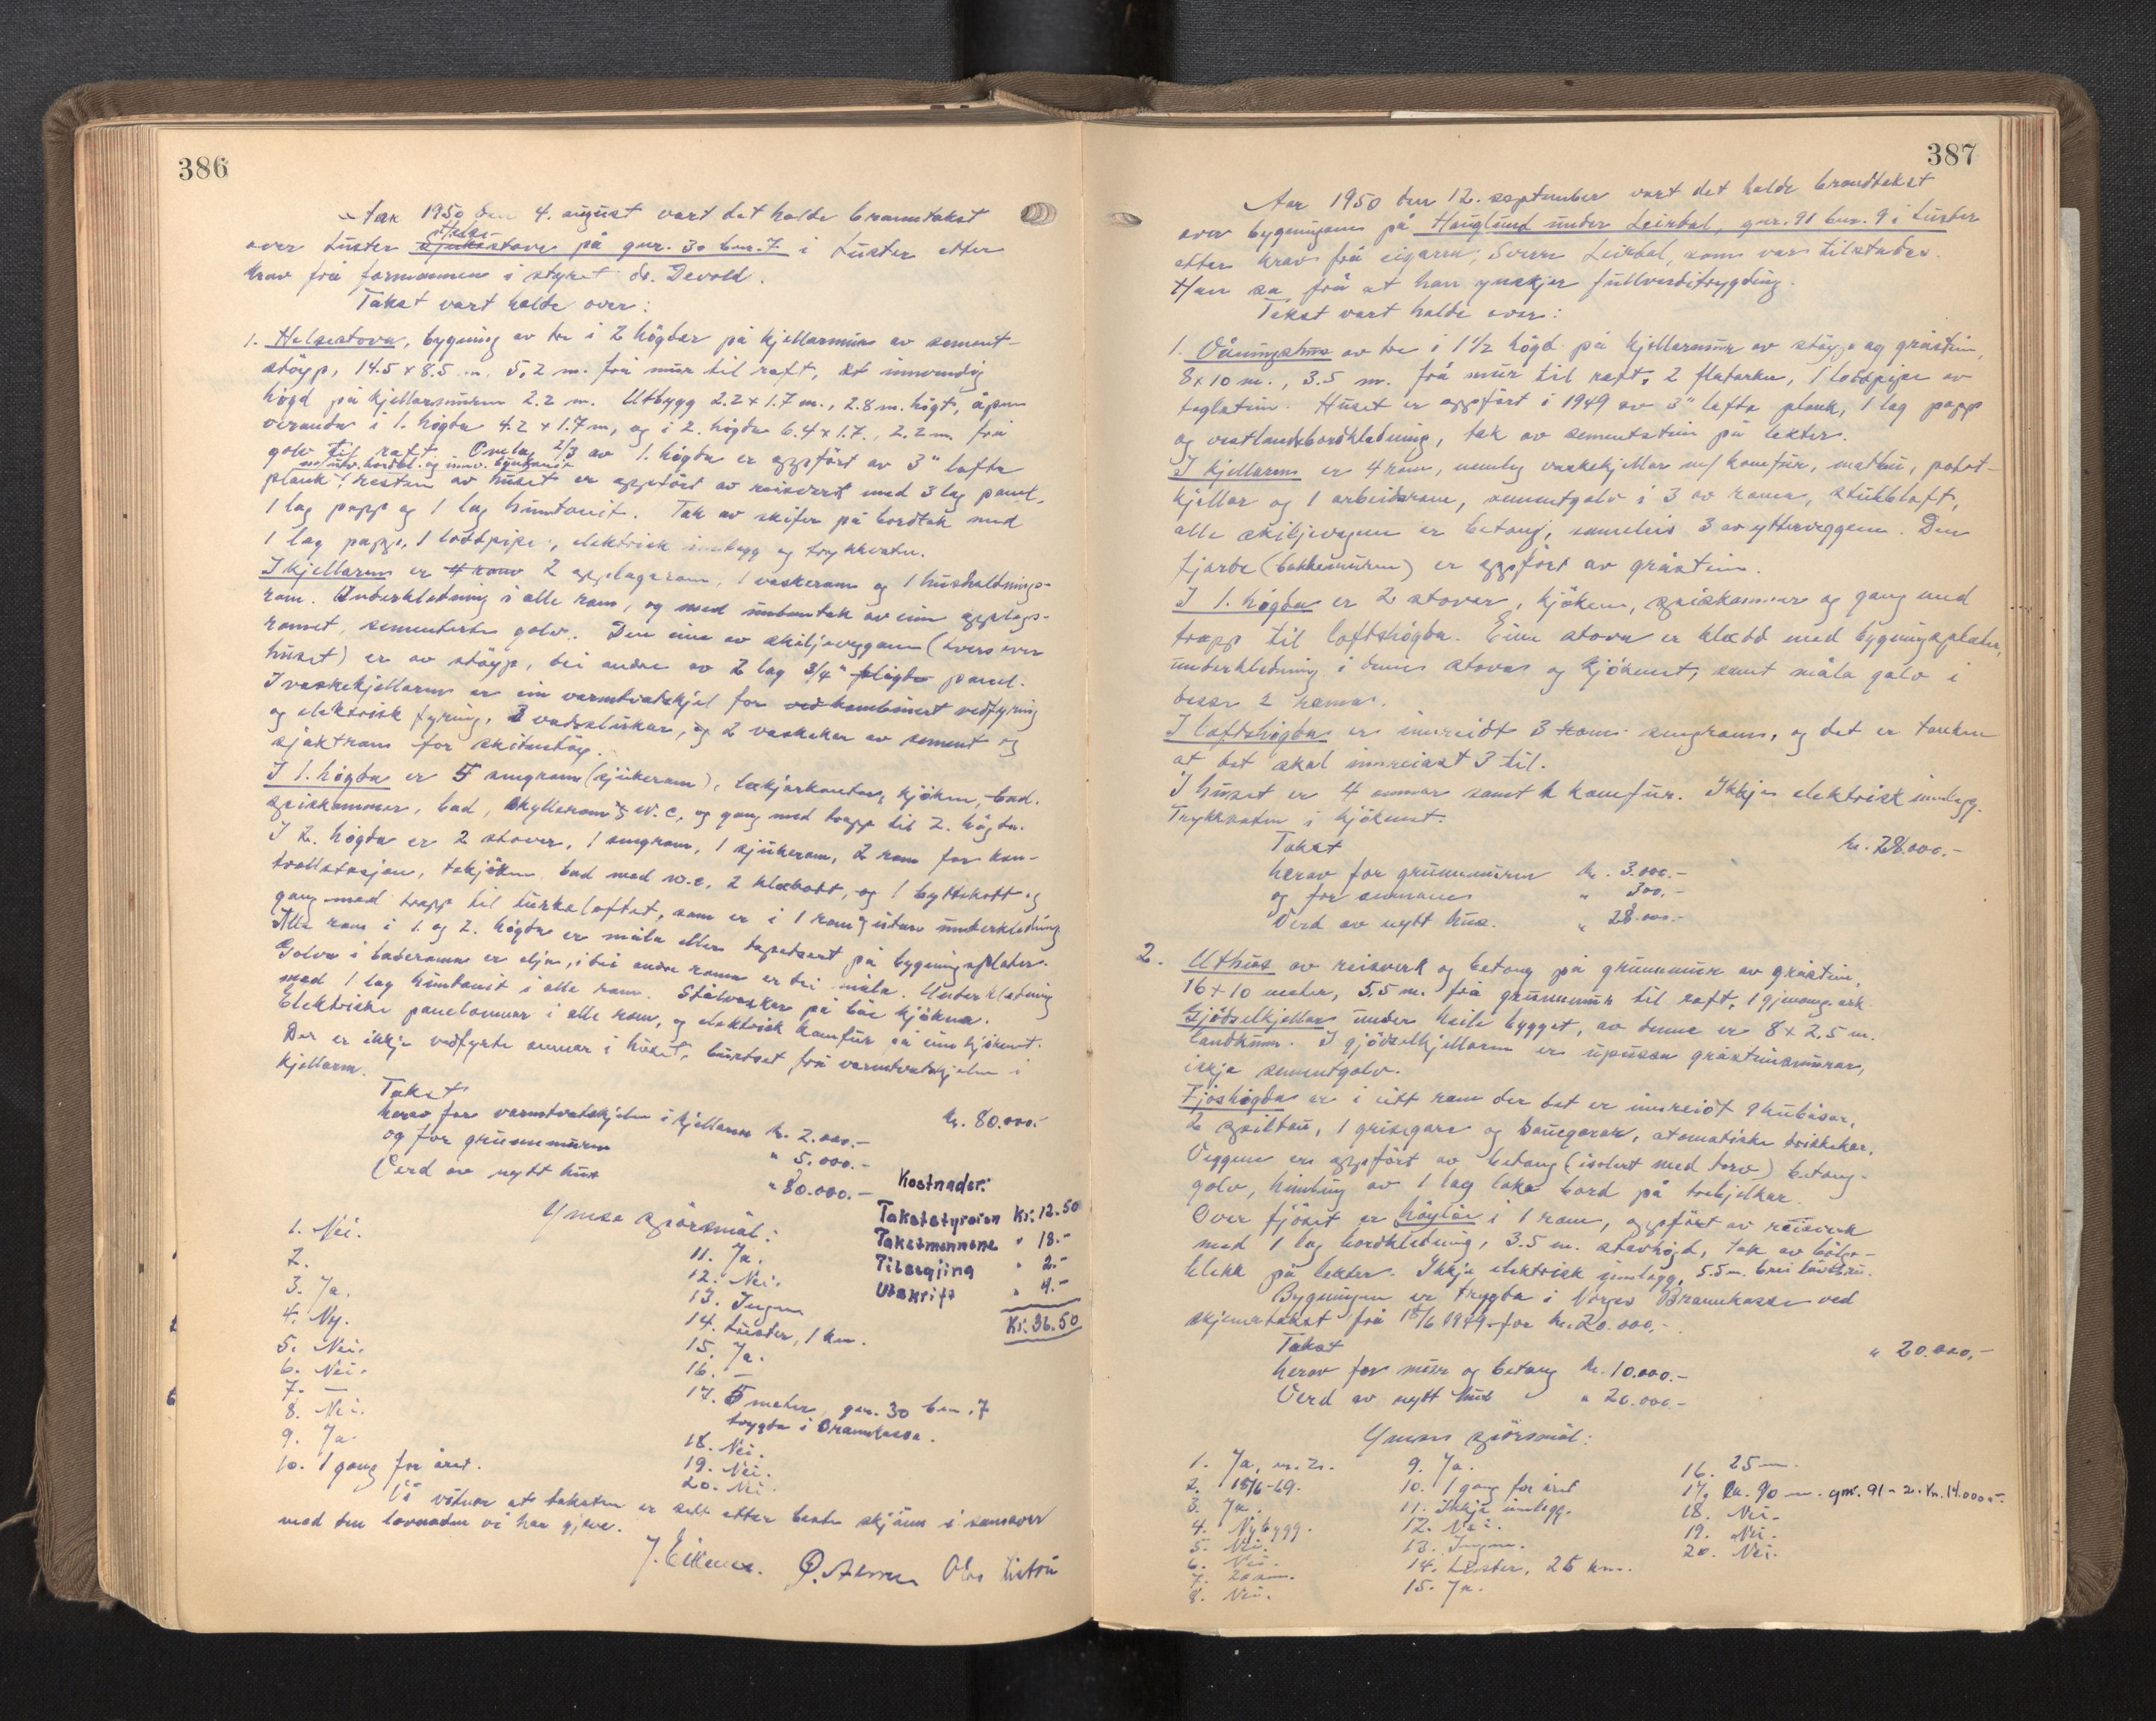 386
Aar 1950 den 4. august vart det halde branntakst
over Luster sjukestove Helse- på gnr. 30 bnr. 7 i Luster etter
krav frå formannen i styret dr. Devold.
Takst vart halde over:
1. Helsestova, bygning av tre i 2 högder på kjellarmur av sement-
stöyp, 14.5 x 8.5 m, 5,2 m. frå mur til raft, innvendig
högd på kjellarmuren 2.2 m. Utbygg 2.2 x 1.7 m., 2.8 m. högt, åpen
veranda i 1. högda 4.2 x 1.7 m, og i 2. högda 6.4 x 1.7., 2.2 m. frå
golv til raft. Omlag 2/3 av 1. högda er oppfört av 3" lafta
m/utv. bordkl. og innv.
plank, resten av huset er oppfört av reisverk med 3 lag panel,
1 lag papp og 1 lag huntonit. Tak av skifer på bordtak med
1 lag papp, 1 loddpipe, elektrisk innlegg og trykkvatn.
I kjellaren er 4 rom 2 opplagsrom, 1 vaskerom og 1 husholdnings-
rom. Underkledning i alle rom, og med undantak av ein opplags-
romet, sementerte golv. Den eine av skiljeveggene (tvers over
huset) er av stöyp, dei andre av 2 lag 3/4" pløgde panel.
I vaskekjellaren er ein varmtvatskjel for ved kombinert vedfyring
og elektrisk fyring, 2 vadslukar, og 2 vaskekar av sement og
sjaktrom for skitentöy.
I 1. högda er 5 sengrom (sjukerom), lækjarkontor, kjöken, bad,
spiskammer, bad, skyllerom, W.C, og gang med trapp til 2. högda.
I 2. högda er 2 stover, 1 sengrom, 1 sjukerom, 2 rom for kon-
trollstasjon, tekjöken, bad med w.c, 2 klekott, og 1 byttekott og
gang med trapp til turkeloftet, som er i 1 rom, utan underkledning
Alle rom i 1. og 2. högda er måla eller tapetsert på bygningsplater.
Golva i baderomma er olja, i dei andre romma er dei måla. Underkledning
med 1 lag huntonit i alle rom. Stålvaskar på båe kjökna.
Elektriske panelomnar i alle rom, og elektrisk komfur på eine kjökenet.
Der er ikkje vedfyrte omnar i huset, burtset frå varmtvatskjelen i
kjellaren.
Takst kr. 80.000.-
herav for varmtvatskjelen i kjellaren kr. 2.000.-
og for grunnmuren " 5.000.-
Verd av nytt hus " 80.000.-
Kostnader:
Takststyraren Kr. 12.50
Takstmennene " 18.-
Tilseging " 2.-
Utskrift " 4.-
Kr. 36.50
Ymse spörsmål:
1. Nei.
2.
3. Ja.
4. Ny.
5. Nei.
6. Nei.
7. —
8. Nei.
9. Ja
10. 1 gang for året.
11. Ja.
12. Nei.
13. Ingen
14. Luster, 1 km.
15. Ja.
16. —
17. 5 meter, gnr. 30 bnr. 7
trygda i Brannkassa.
18. Nei.
19. Nei.
20. Nei.
Vi vitnar at taksten er sett etter beste skjönn i samsvar
med den lovnaden vi har gjeve.
387
Aar 1950 den 12. september vart det halde branntakst
over bygningane på Hauglund under Leirdal, gnr. 91 bnr. 9 i Luster
etter krav frå eigaren, Sverre Leirdal, som var tilstades.
Han sa frå at han ynskjer fullverditrygding.
Takst vart halde over:
1. Våningshus av tre i 1½ högd på kjellarmur av stöyp og gråstein,
8 x 10 m., 3.5 m. frå mur til raft, 2 flatarker, 1 loddpipe av
teglstein. Huset er oppfört i 1949 av 3" lafta plank, 1 lag papp
og vestlandsbordkledning, tak av sementstein på lekter.
I kjellaren er 4 rom, nemleg vaskekjellar m/komfur, matbu, potet-
kjellar og 1 arbeidsrom, sementgolv i 3 av romma, stubbloft,
alle skiljevegene er betong, sameleis 3 av ytterveggene. Den
fjorde (bakkemuren) er oppfört av gråstein.
I 1. högda er 2 stover, kjöken, spiskammer og gang med
trapp til loftshögda. Eine stova er kledd med bygningsplater,
underkledning i denne stova og kjökenet, samt måla golv i
desse 2 romma.
I loftshögda er innreidt 3 rom sengrom, og det er tanken
at det skal innreiast 3 til.
I huset er 4 omnar samt 1 komfur. Ikkje elektrisk innlegg.
Trykkvatn i kjökenet.
Takst kr. 28.000.-
herav for grunnmuren kr. 3.000.-
og for omnane " 300.-
Verd av nytt hus. " 28.000.-
2. Uthus av reisverk og betong på grunnmur av gråstein,
16 x 10 meter, 5.5 m. frå grunnmur til raft, 1 gjenomg. ark.
Gjödselkjellar under heile bygget, av denne er 8 x 2,5 m.
landkum. I gjödselkjellaren er upussa gråsteinsmurar,
ikkje sementgolv.
Fjöshögda er i eitt rom der det er innreidt 9 kubåsar,
2 spiltau, 1 grisegard og sauegarar, atomatiske drikkekar.
Veggene er oppfört av betong (isolert med torv) betong-
golv, himling av 1 lag löke bord på trebjelkar.
Over fjöset er höylåe i 1 rom, oppfört av reisverk
med 1 lag bordkledning, 3.5 m. stavhögd, tak av bölge-
blekk på lekter. Ikkje elektrisk innlegg, 5.5 m. brei låvebru.
Bygningen er trygda i Norges Brannkasse ved
skjemetakst frå 18/6 1949 for kr. 20.000,-
Takst " 20.000,-
herav for mur og betong kr. 10.000.-
Verd av nytt hus " 20.000.-
Ymse spörsmål:
1. Ja, nr. 2.
2. 18/6-49.
3. Ja.
4. Nybygg.
5. Nei.
6. Nei.
7. 20 m.
8. Nei.
9. Ja.
10. 1 gang for året
11. Ikkje innlegg.
12. Nei.
13. Ingen.
14. Luster, 25 km.
15. Ja.
16. 25 m.
17. Ca. 90 m. gnr. 91 - 2. Kr. 14.000.-
18. Nei.
19. Nei.
20. Nei.